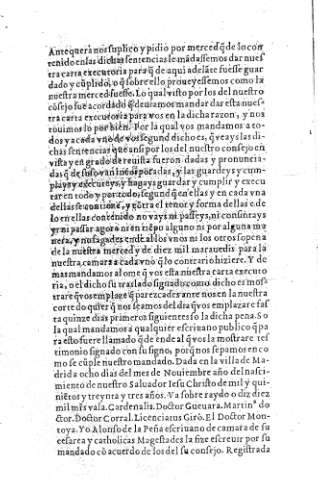 Antequera nos suplico y pidio por merced q̃ de lo con
tenido enlas dichas sentencias le mãdassemos dar nues
tra carta executoria para q̃ de aqui adelãte fuesse guar
dado y cũplido, o q̃ sobrello proueyessemos como la
nuestra merced fuesse. Lo qual visto por los del nuestro
cõsejo fue acordado q̃ deuiamos mandar dar esta nues
tra carta executoria para vos en la dicha razon, y nos
touimos lo por bien. Por la qual vos mandamos a to-
dos y a cada vno de vos segund dicho es, q̃ veays las di-
chas sentencias que ansi por los del nuestro consejo en
vista y en grado de reuista fueron dadas y pronuncia-
das q̃ de suso van incorporadas, y las guardeys y cum-
playsy executeys, y hagays guardar y cumplir y execu
tar en todo y por todo, segund q̃ en ellas y en cada vna
dellas se contiene, y cõtra el tenor y forma dellas e de
lo en ellas contenido no vays ni passeys, ni consintays
yr ni passar agora ni en tiẽpo alguno ni por alguna ma
nera, y no fagades ende al los vnos ni los otros so pena
de la nuestra merced y de diez mil marauedis para la
nuestra camara a cada vno q̃ lo contrario hiziere. Y de
mas mandamos al ome q̃ vos esta nuestra carta execu to
ria, o el dicho su traslado signado como dicho es mos-
trare q̃ vos emplaze q̃ parezcades ante nos en la nuestra
corte do quier q̃ nos seamos del dia q̃ vos emplazare fas
ta quinze dias primeros siguientes so la dicha pena. So
la qual mandamos a qualquier escriuano publico q̃ pa
ra esto fuere llamado q̃ de ende al q̃ vos la mostrare tes
timonio signado con su signo, porq̃ nos sepamos en co
mo se cũple nuestro mandado. Dada en la villa de Ma-
drid a ocho dias del mes de Nouiembre año del nasci-
miento de nuestro Saluador Iesu Christo de mil y qui-
niẽtos y treynta y tres años. Va sobre raydo o diz diez
mil mr̃s vala. Cardenalis. Doctor Gueuara. Martinᵒ do
ctor. Doctor Corral. Licenciatus Girõ. El Doctor Mon-
toya. Yo Alonso de la Peña escriuano de camara de su
cesarea y catholicas Magestades la fize escreuir por su
mandado cõ acuerdo de los del su consejo. Registrada